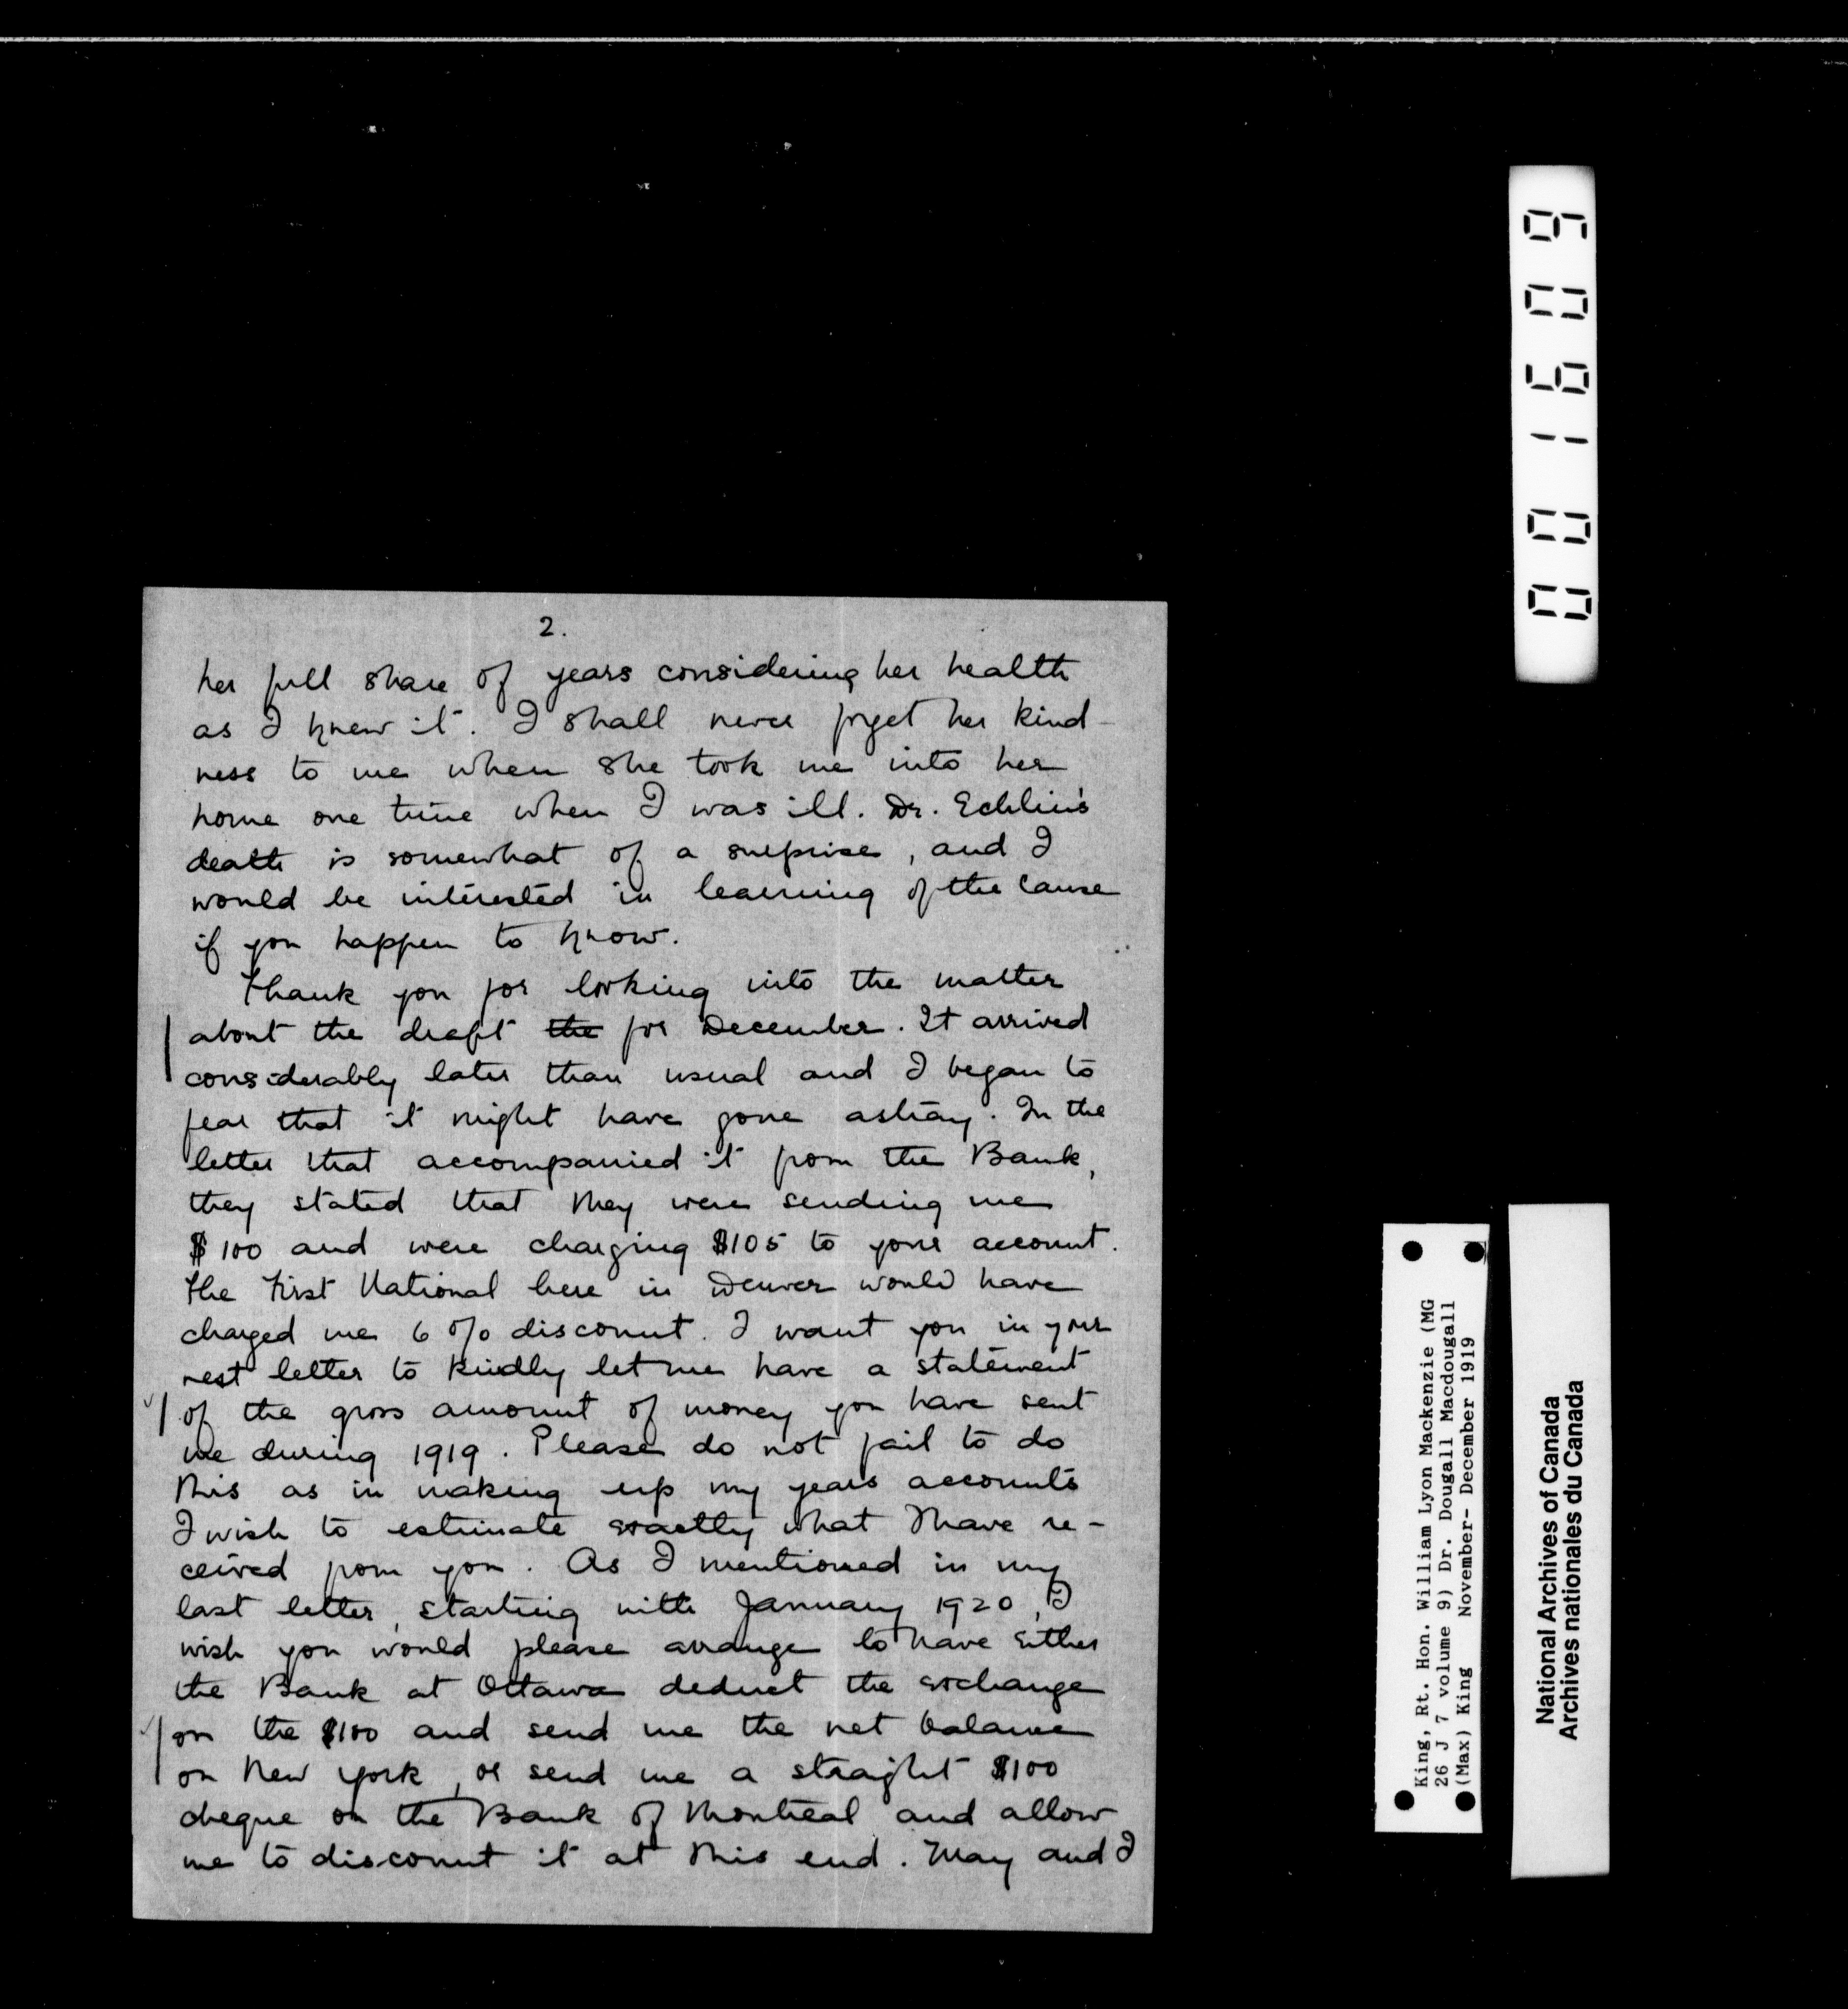 2.
her full share of years considering her health
as I knew it. I shall never forget her kind-
ness to me when she took me into her
home one time when I was ill. Dr. Echlin's
death is somewhat of a surprise, and I
would be interested in learning of the cause
if you happen to know.
Thank you for looking into the matter
about the draft the for December. It arrived
considerably later than usual and I began to
fear that it might have gone astray. In the
letter that accompanied it from the Bank,
they stated that they were sending me
$100 and were charging $105 to your account.
The First National here in Denver would have
charged me 6% discount. I want you in your
next letter to kindly let me have a statement
of the gross amount of money you have sent
me during 1919. Please do not fail to do
this as in making up my years accounts
I wish to estimate exactly what I have re-
ceived from you. As I mentioned in my
last letter, starting with January 1920, I
wish you would please arrange to have either
the Bank at Ottawa deduct the exchange
on the $100 and send me the net balance
on New York, or send me a straight $100
cheque on the Bank of Montreal and allow
me to discount it at this end. May and I
001609
King, Rt. Hon. William Lyon Mackenzie (MG
26 J 7 volume 9) Dr. Dougall Macdougall
(Max) King November- December 1919
National Archives of Canada
Archives nationales du Canada